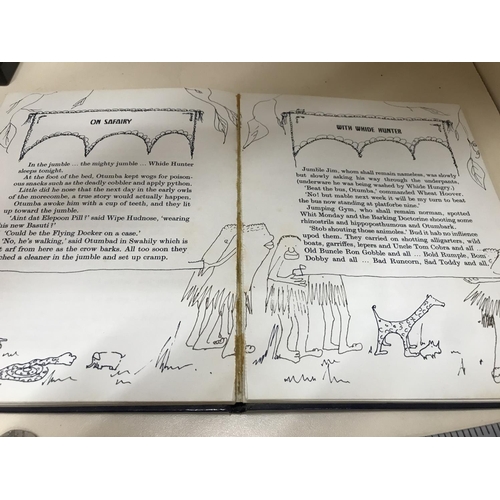 ON SAFAIRY
In the jumble ... the mighty jumble ... Whide Hunter
sleeps tonight.
At the foot of the bed, Otumba kept wogs for poison-
ous snacks such as the deadly cobbler and apply python.
Little did he know that the next day in the early owls
of the morecombe, a true story would actually happen,
Otumba awoke him with a cup of teeth, and they lit
up toward the jumble.
'Aint dat Elepoon Pill?' said Wipe Hudnose, 'wearing
his new Basuti?'
'Could be the Flying Docker on a case.'
'No, he's walking,' said Otumbad in Swahily which is
t arf from here as the crow barks. All too soon they
ched a cleaner in the jumble and set up cramp.
WITH WHIDE HUNTER
Jumble Jim, whom shall remain nameless, was slowly
but slowly asking his way through the underpants,
(underware he was being washed by Whide Hungry.)
'Beat the bus, Otumba!' commanded Wheat Hoover.
'No! but mabie next week it will be my turn to beat
the bus now standing at platforbe nine.'
Jumping Gym, who shall remain norman, spotted
Whit Monday and the Barking Doctorine shooting some
rhinostills and hippoposthumous and Otumbark.
'Stoh shouting those animoles.' Bud it hab no influence
upon them. They carried on shotting alligarters, wild
boats, garriffes, lepers and Uncle Tom Cobra and all
Old Buncle Ron Gobble and all ... Bold Rumple, Bom
Dobby and all ... Bad Runcorn, Sad Toddy and all,